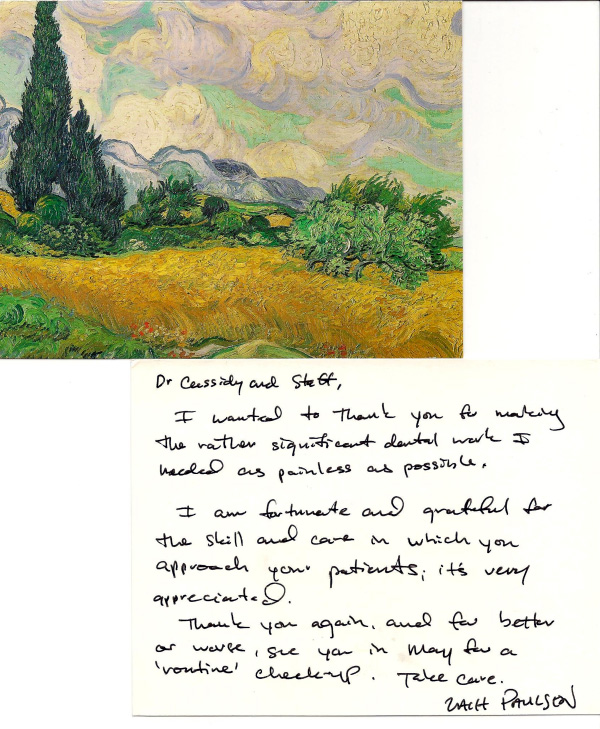 Dr Cassidy and Staff,
I wanted to thank you for making
the rather significant dental work I
needed as painless as possible.
I am fortunate and grateful for
the skill and care in which you
approach your patients; it's very
appreciated.
Thank you again, and for better
or worse, see you in May for a
'routine' check-up. Take care.
ZACH PAULSON